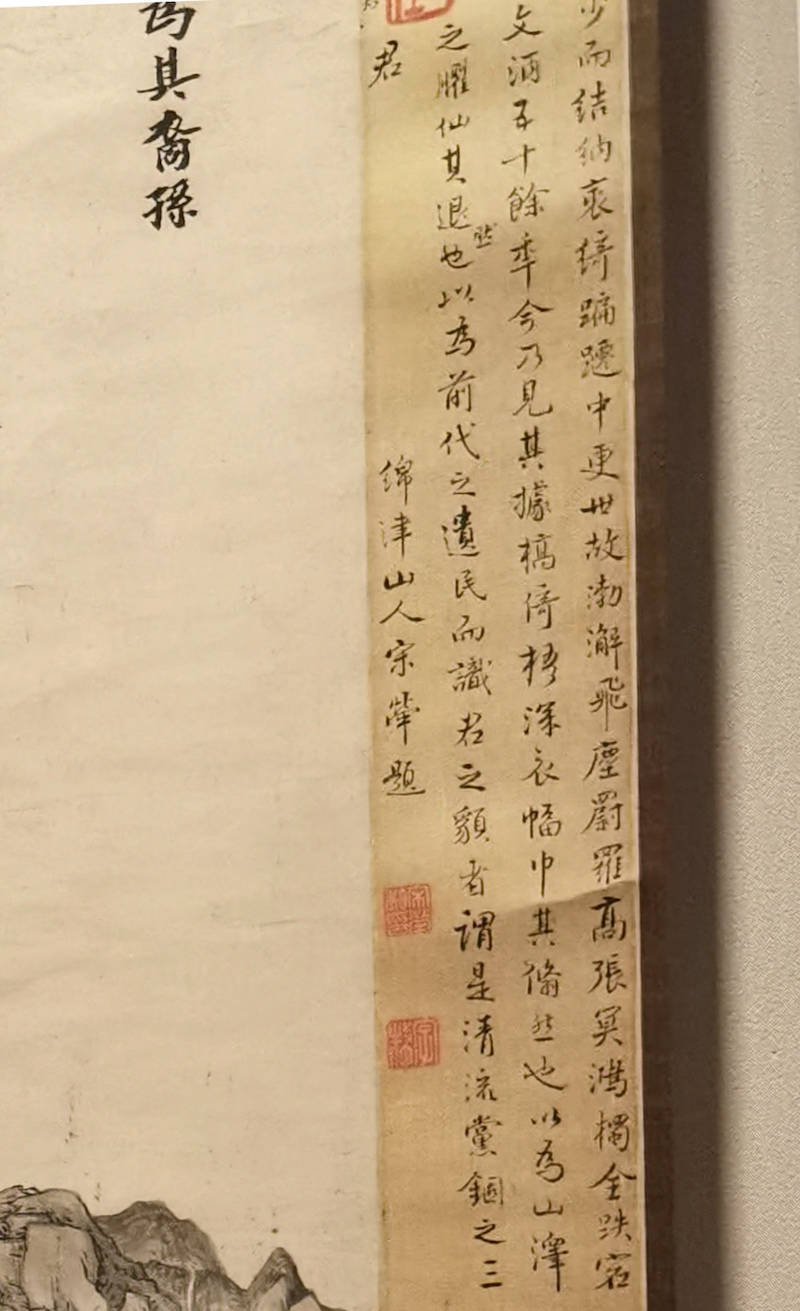 少而結納裘綺蹁躚中更世故渤澥飛塵罻羅高張冥鴻獨全跌宕
文酒五十餘年今乃見其據槁倚梧深衣幅巾其翛然也以為山澤
之臞仙其退然也以為前代之遺民而識君之貌者謂是清流黨錮之三
君
綿津山人宋犖題
為其裔孫